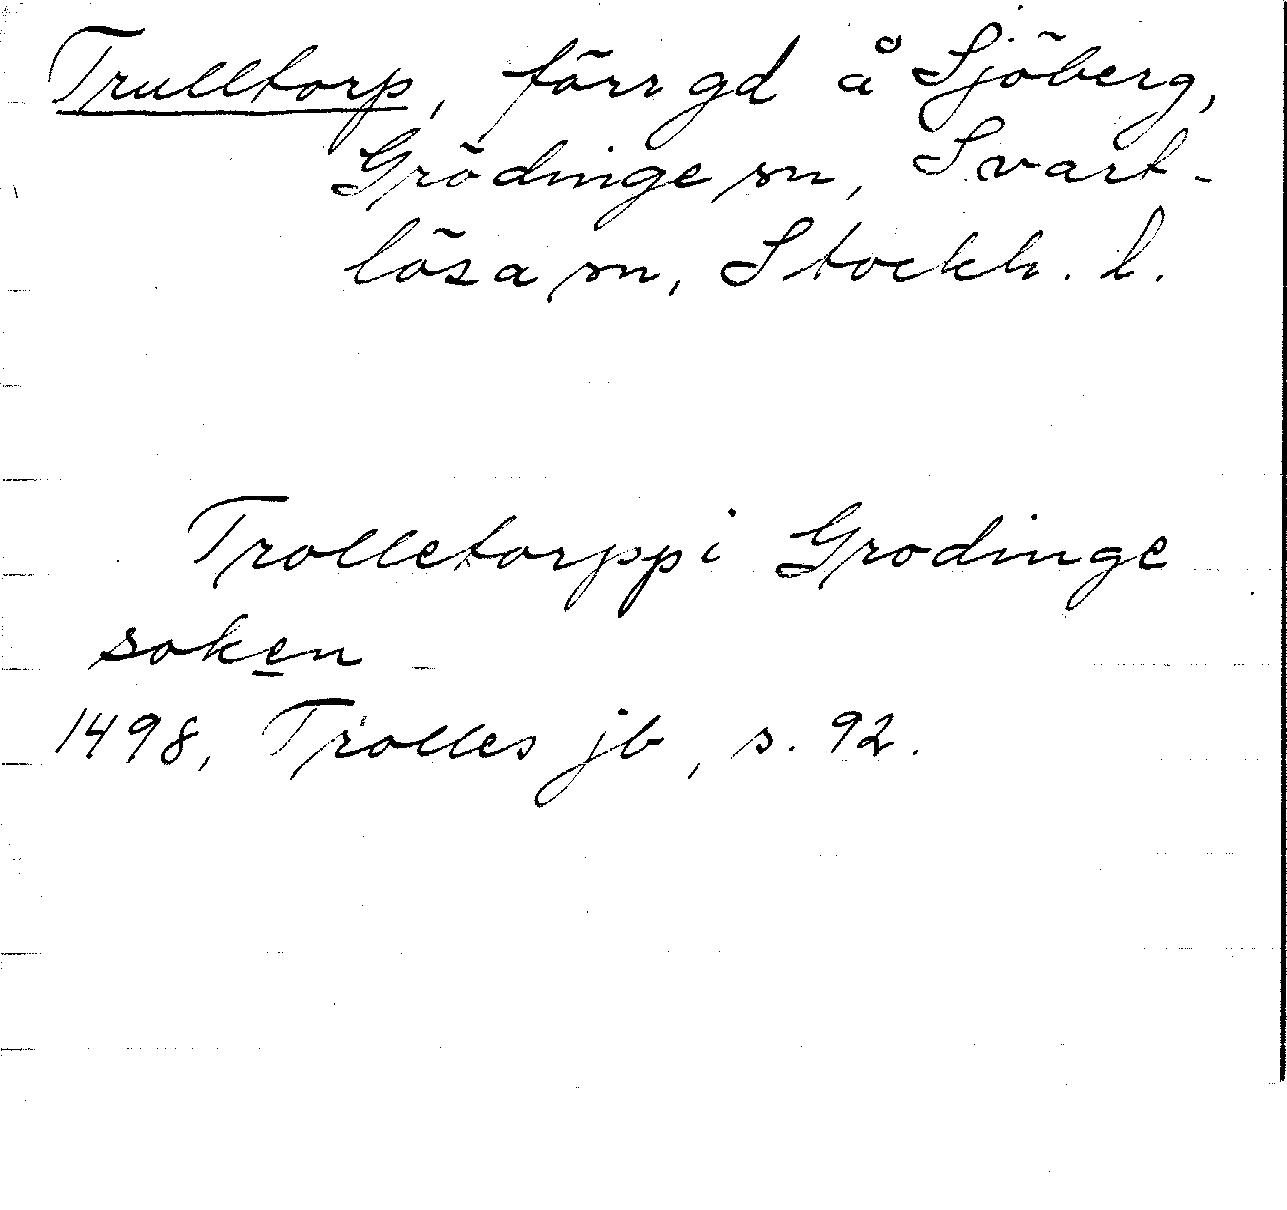 Trulltorp, förr gd å Sjöberg,
Grödinge sn, Svart-
lösa sn, Stockh. l.
Trolletorpp i Grodinge
soken
1498, Trolles jb, s. 92.